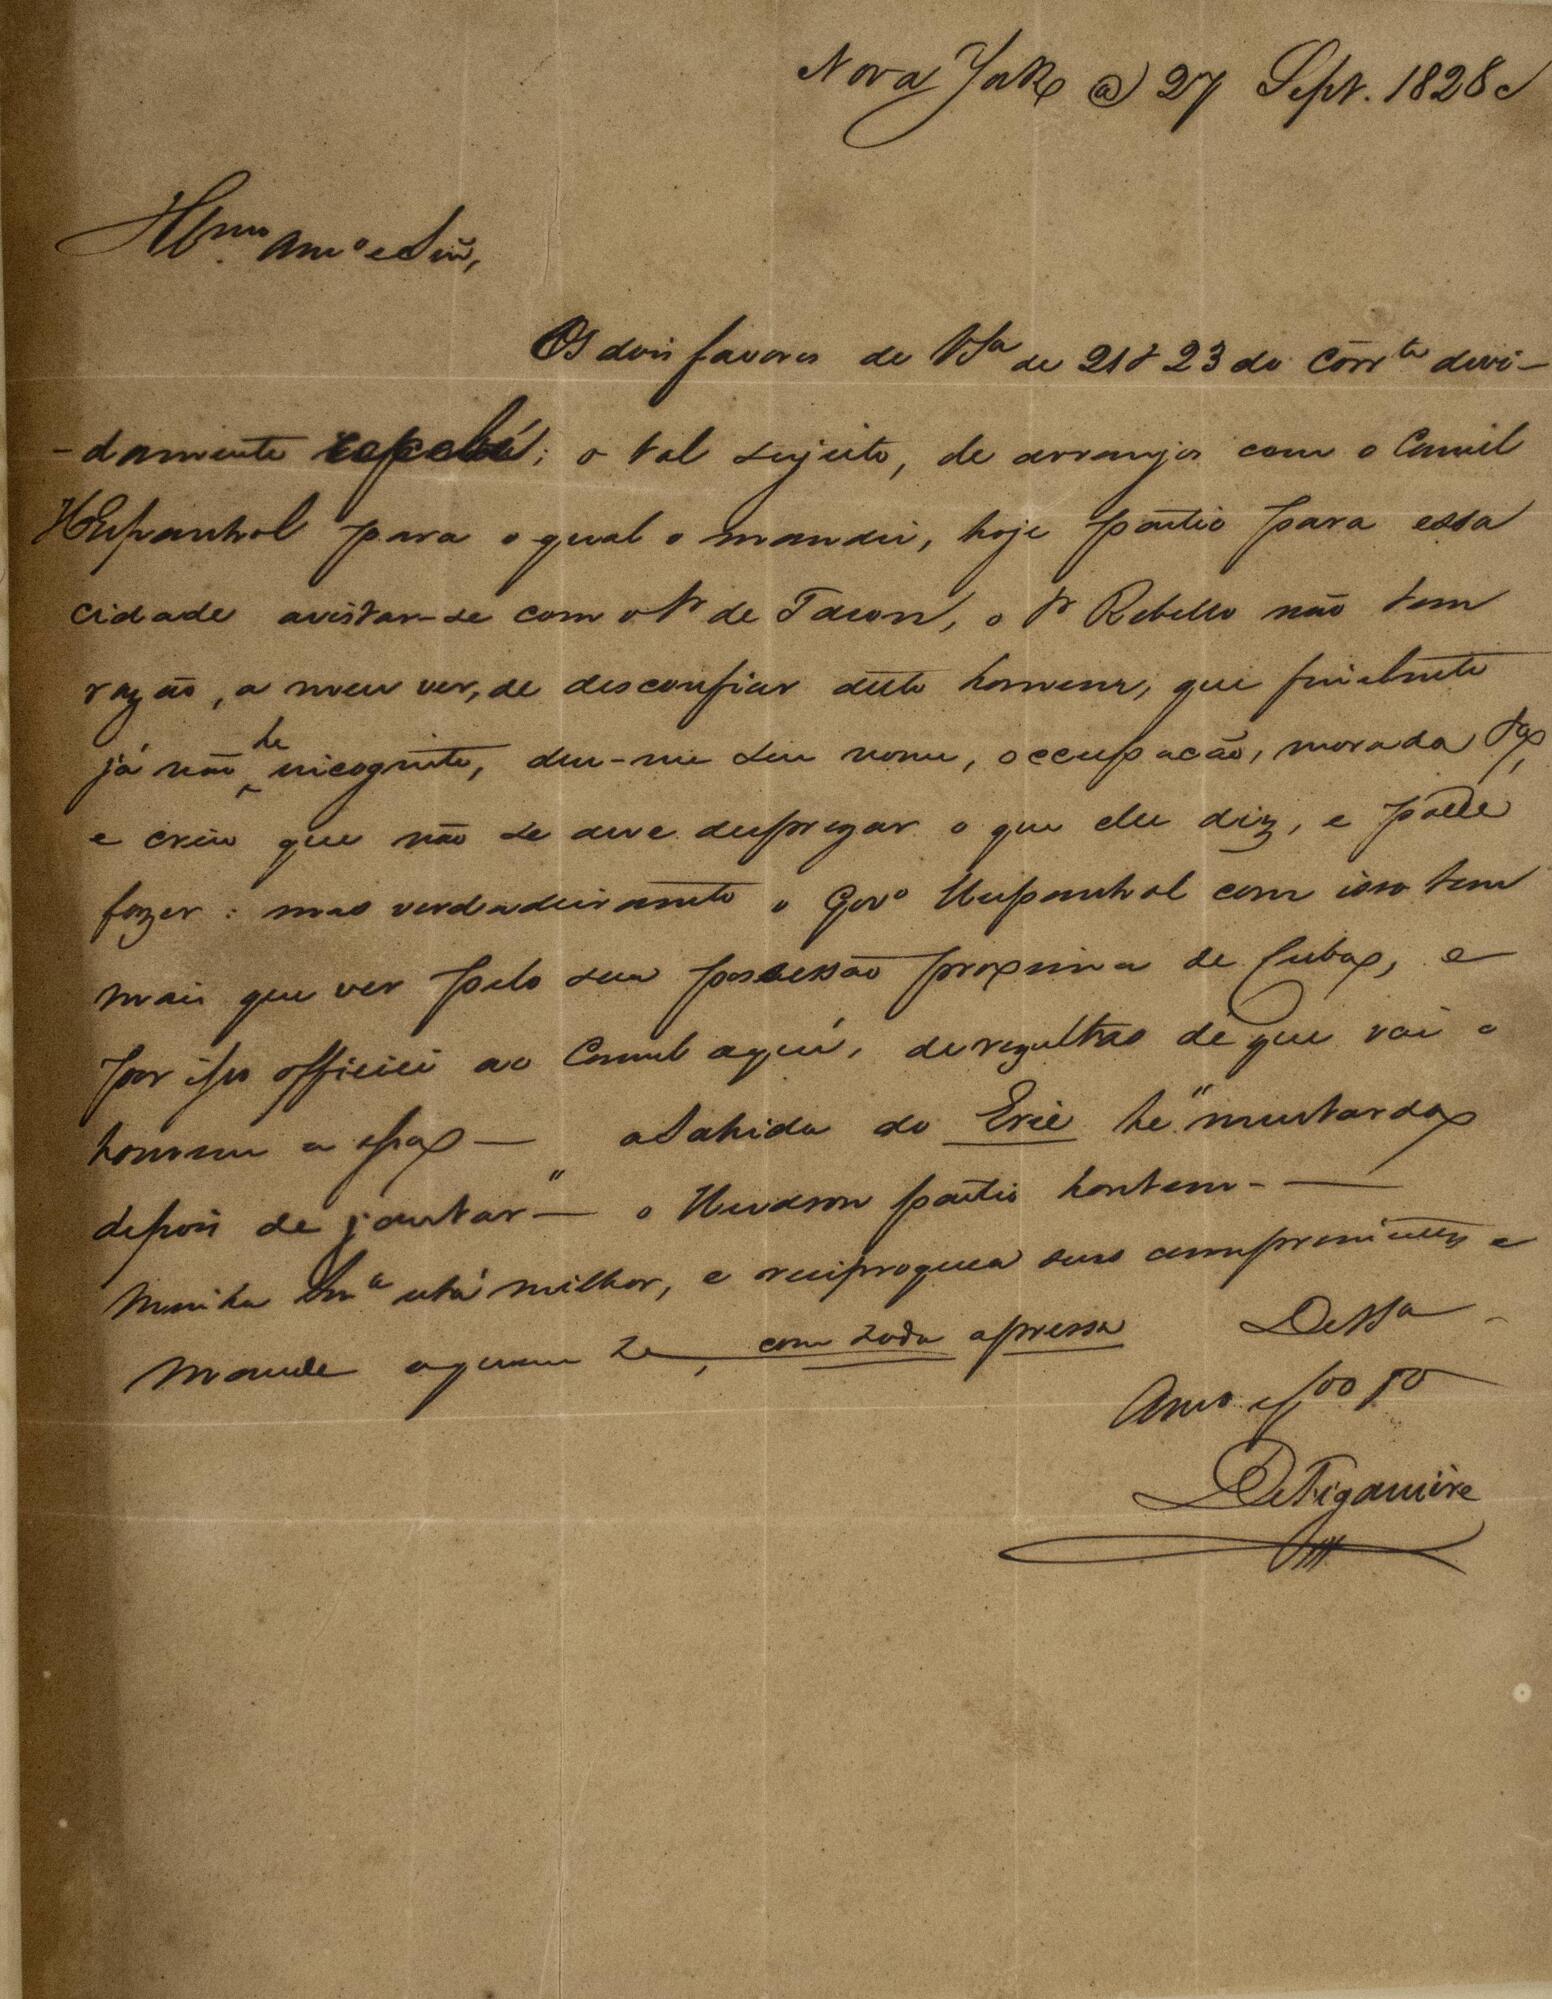 Nova York @ 27 Sept. 1828
Illmo. Amo e Snr,
Os dois favores de VSa de 21 & 23 do Corrte devi-
-damente recebi; o tal sujeito, de arranjo com o Consul
Hespanhol para o qual o mandei, hoje partio para essa
cidade avistar-se com o Sr de Tacon, o Sr Rebello não tem
razão, a meu ver, de desconfiar deste homem, que finalmte
já não he incognito, deu-me seu nome, occupação, morada &a,
e creio que não se deve desprezar o que elle diz, e póde
fazer: mas verdadeiramte o Govo Hespanhol com isso tem
mais que ver pelo sua possessão proxima de Cuba, e
por isso officiei ao Consul aqui, de rezultas de que vai o
homem a essa — a Sahida do Erie he "mustarda
depois de jantar" — o Hudson partio hontem. —
Minha Snra está milhor, e reciproquea seus comprimentos e
mande a quem he, com toda a pressa DeVSa
Amo e
De Figanière